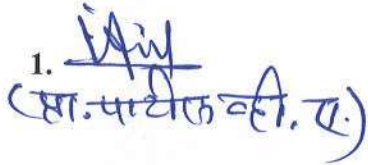 1.
(प्रा. पाटील व्ही. ए.)